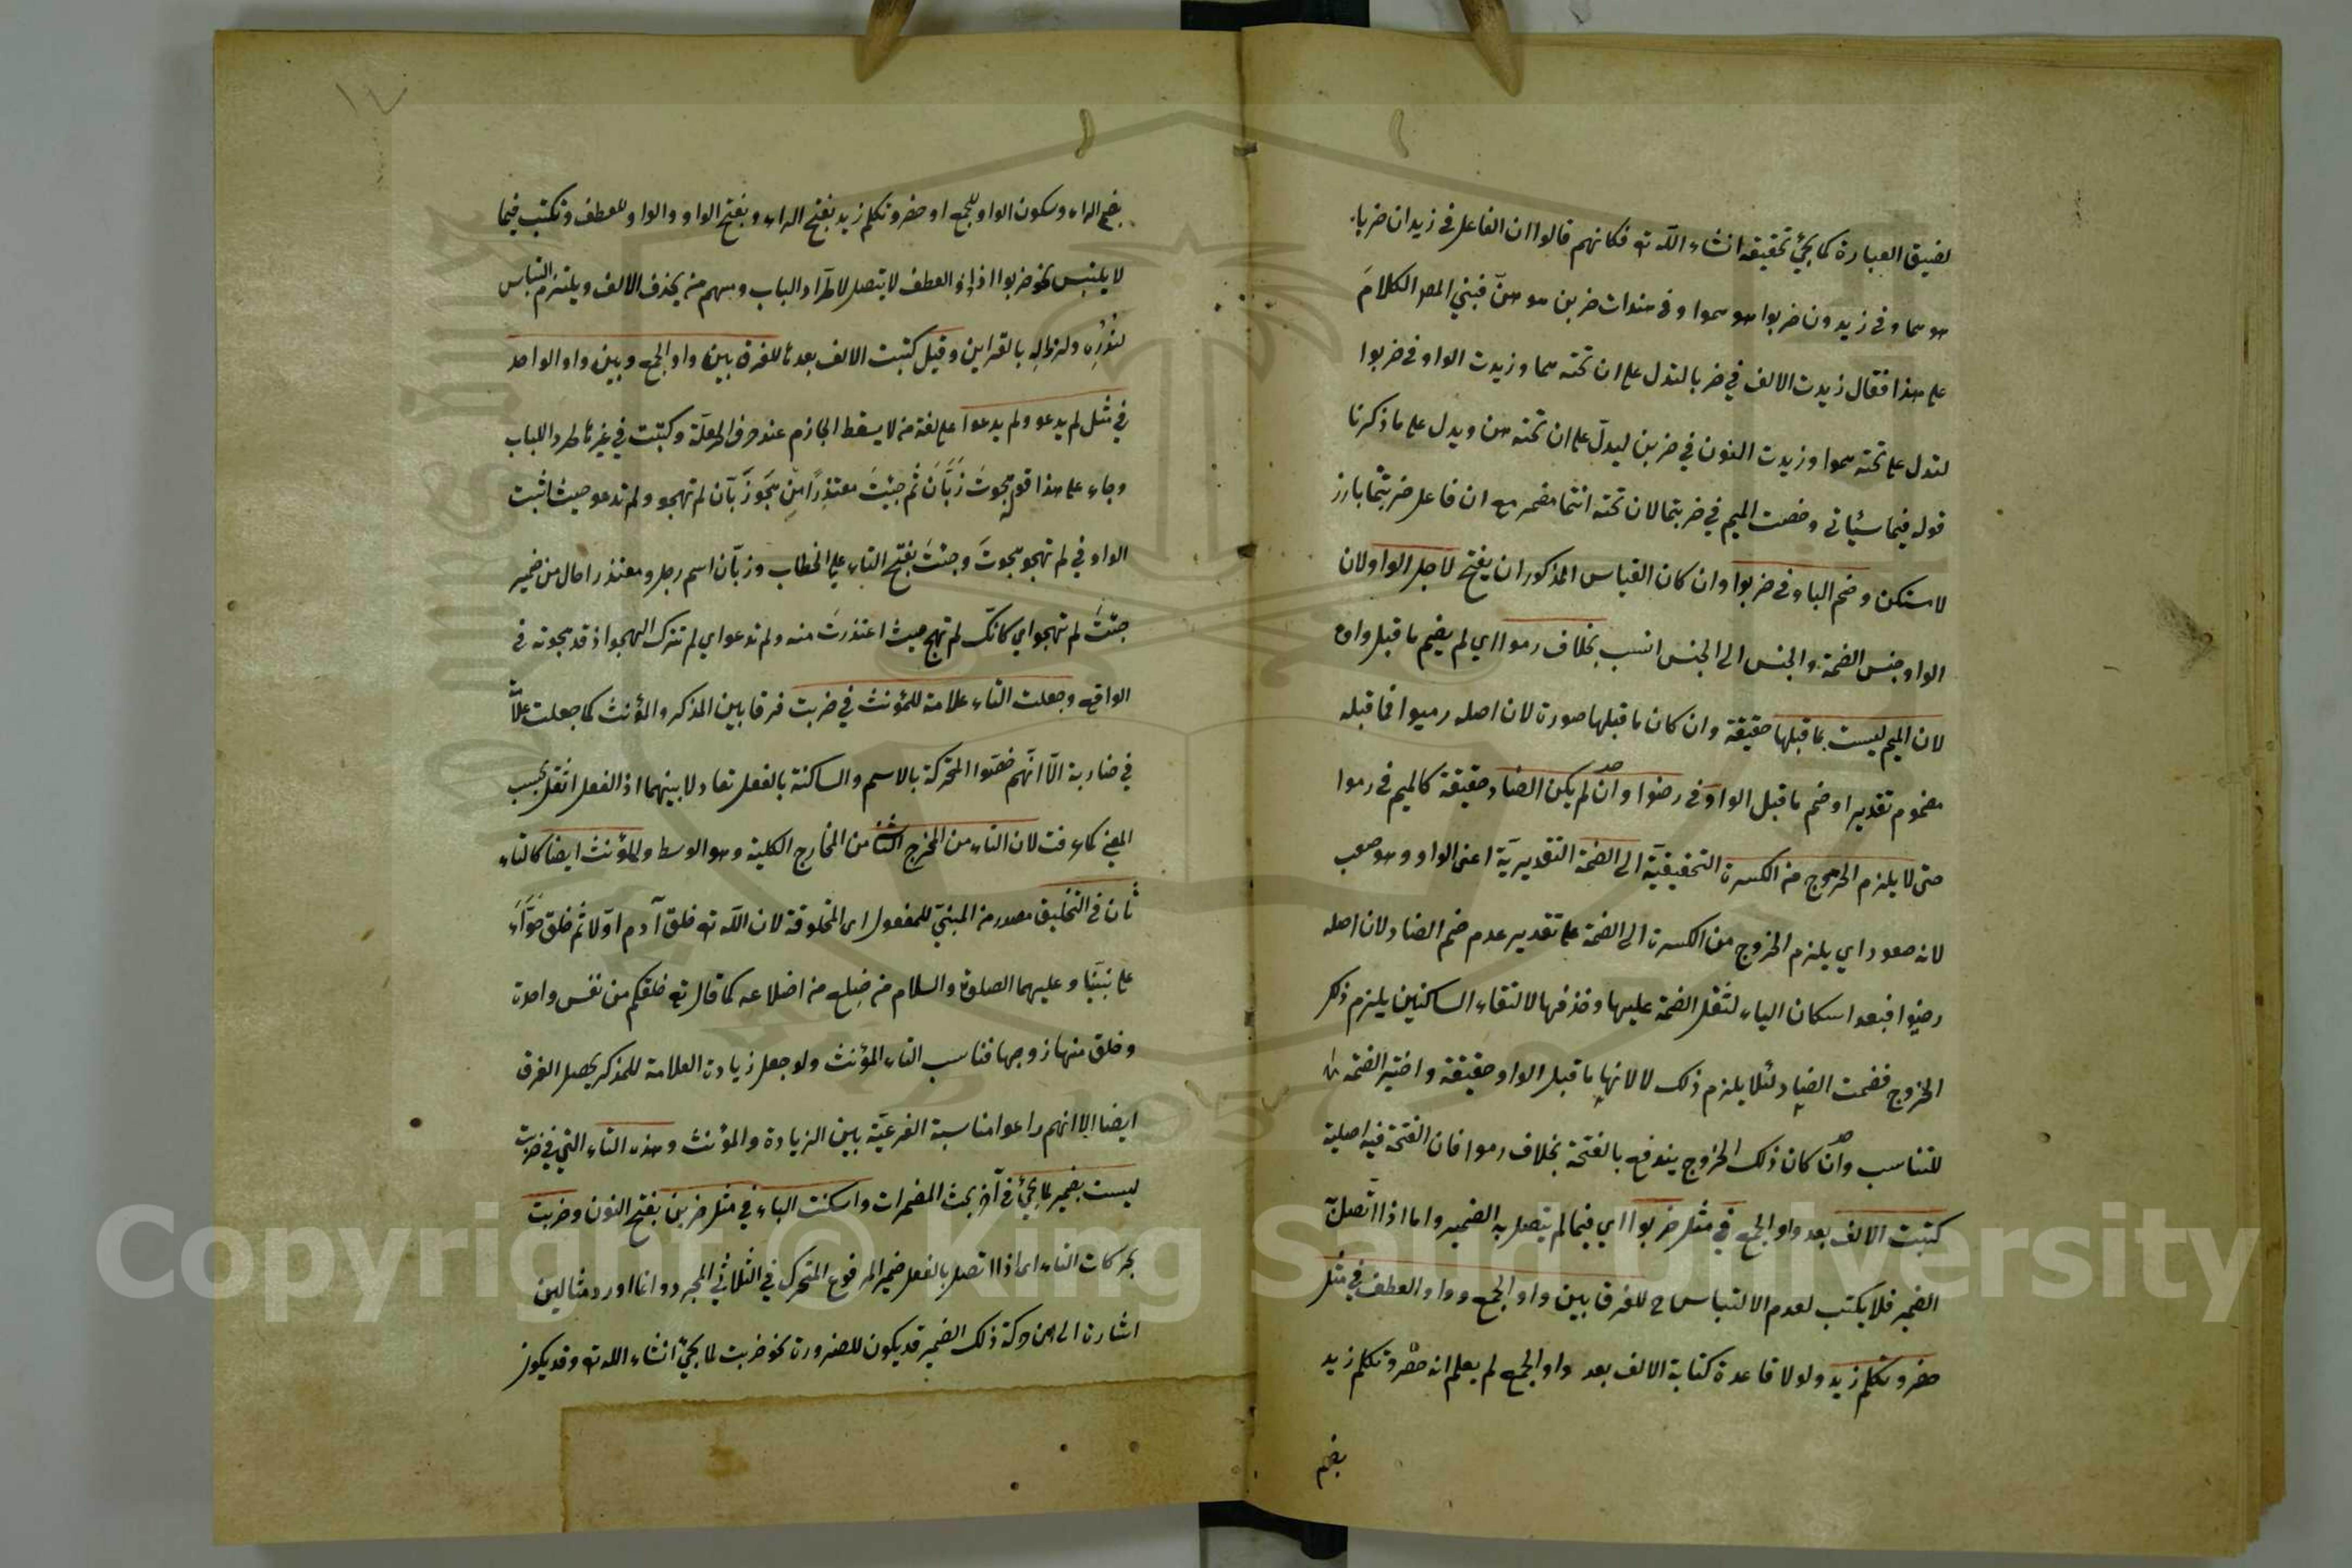 لضيق العبارة كما يجئ تحقيقه انشاء الله تع فكانهم قالوا ان الفاعل في زيدان ضربا
هو هما وفي زيدون ضربوا هو هموا وفي هندات ضربن هو هن فبني المص الكلام
على هذا فقال زيدت الالف في ضربا لتدل على ان تحته هما وزيدت الواو في ضربوا
لتدل على تحته هموا وزيدت النون في ضربن ليدل على ان تحته هن ويدل على ما ذكرنا
قوله فيما سيأتي وخصت الميم في ضربتما لان تحته انتما مضمر مع ان فاعل ضربتما بارز
لا مستكن وضم الباء في ضربوا وان كان القياس المذكور ان يفتح لاجل الواو لان
الواو جنس الضمة والجنس الى الجنس انسب بخلاف رموا اي لم يضم ما قبل واوه
لان الميم ليست بما قبلها حقيقة وان كان ما قبلها صورة لان اصله رميوا فما قبله
مضموم تقديرا وضم ما قبل الواو في رضوا وان لم يكن الضاد حقيقة كالميم في رموا
حتى لا يلزم الخروج من الكسرة التحقيقية الى الضمة التقديرية اعنى الواو وهو صعب
لانه صعود اي يلزم الخروج من الكسرة الى الضمة على تقدير عدم ضم الضاد لان اصله
رضيوا فبعد اسكان الياء لثقل الضمة عليها وحذفها لالتقاء الساكنين يلزم ذلك
الخروج فضمت الضاد لئلا يلزم ذلك لا لانها ما قبل الواو حقيقة واختير الضمة
للتناسب وان كان ذلك الخروج يندفع بالفتحة بخلاف رموا فان الفتحة فيه اصلية
كتبت الالف بعد واو الجمع في مثل ضربوا اي فيما لم يتصل به الضمير واما اذا اتصل
الضمير فلا يكتب لعدم الالتباس ح للفرق بين واو الجمع وواو العطف في مثل
حضر وتكلم زيد ولولا قاعدة كتابة الالف بعد واو الجمع لم يعلم انه حضر وتكلم زيد
بضم
١٧
بضم الراء وسكون الواو للجمع او حضر وتكلم زيد بفتح الراء وبفتح الواو والواو للعطف وتكتب فيما
لا يلتبس نحو ضربوا اذ واو العطف لا يتصل لاطراد الباب ومنهم من يحذف الالف ويلتزم التباس
لندوره ولزواله بالقراين وقيل كتبت الالف بعدها للفرق بين واو الجمع وبين واو الواحد
في مثل لم يدعو ولم يدعوا على لغة من لا يسقط الجازم عنده حرف العلة وكتبت في غيرها طرد اللباب
وجاء على هذا قوله هجوت زبان ثم جئت معتذرا من هجو زبان لم تهجو ولم تدعو حيث اثبت
الواو في لم تهجو هجوت وجئت بفتح التاء على الخطاب وزبان اسم رجل ومعتذرا حال من ضمير
جئت لم تهجو اي كانك لم تهج حيث اعتذرت منه ولم تدعو اي لم تترك الهجو اذ قد هجوته في
الواقع وجعلت التاء علامة للمؤنث في ضربت فرقا بين المذكر والمؤنث كما جعلت علامة
في ضاربة الا انهم خصوا المتحركة بالاسم والساكنة بالفعل تعادلا بينهما اذ الفعل اثقل بحسب
المعنى كما عرفت لان التاء من المخرج الثاني من المخارج الكلية وهو الوسط والمؤنث ايضا كالتاء
ثان في التخليق مصدر من المبني للمفعول اى المخلوقة لان الله تع خلق آدم اولا ثم خلق حواء
على نبينا وعليهما الصلوة والسلام من ضلع من اضلاعه كما قال تع خلقكم من نفس واحدة
وخلق منها زوجها فناسب التاء المؤنث ولو جعل زيادة العلامة للمذكر يحصل الفرق
ايضا الا انهم راعوا مناسبة الفرعية بين الزيادة والمؤنث وهذه التاء التي في ضربت
ليست بضمير لما يجئ في آخر بحث المضمرات واسكنت الباء في مثل ضربن بفتح النون وضربت
بحركات التاء اى اذا اتصل بالفعل ضمير المرفوع المتحرك في الثلاثي المجرد وانما اورد مثالين
اشارة الى ان حركة ذلك الضمير قد يكون للضرورة نحو ضربت لما يجئ انشاء الله تع وقد يكون
Copyright © King Saud University